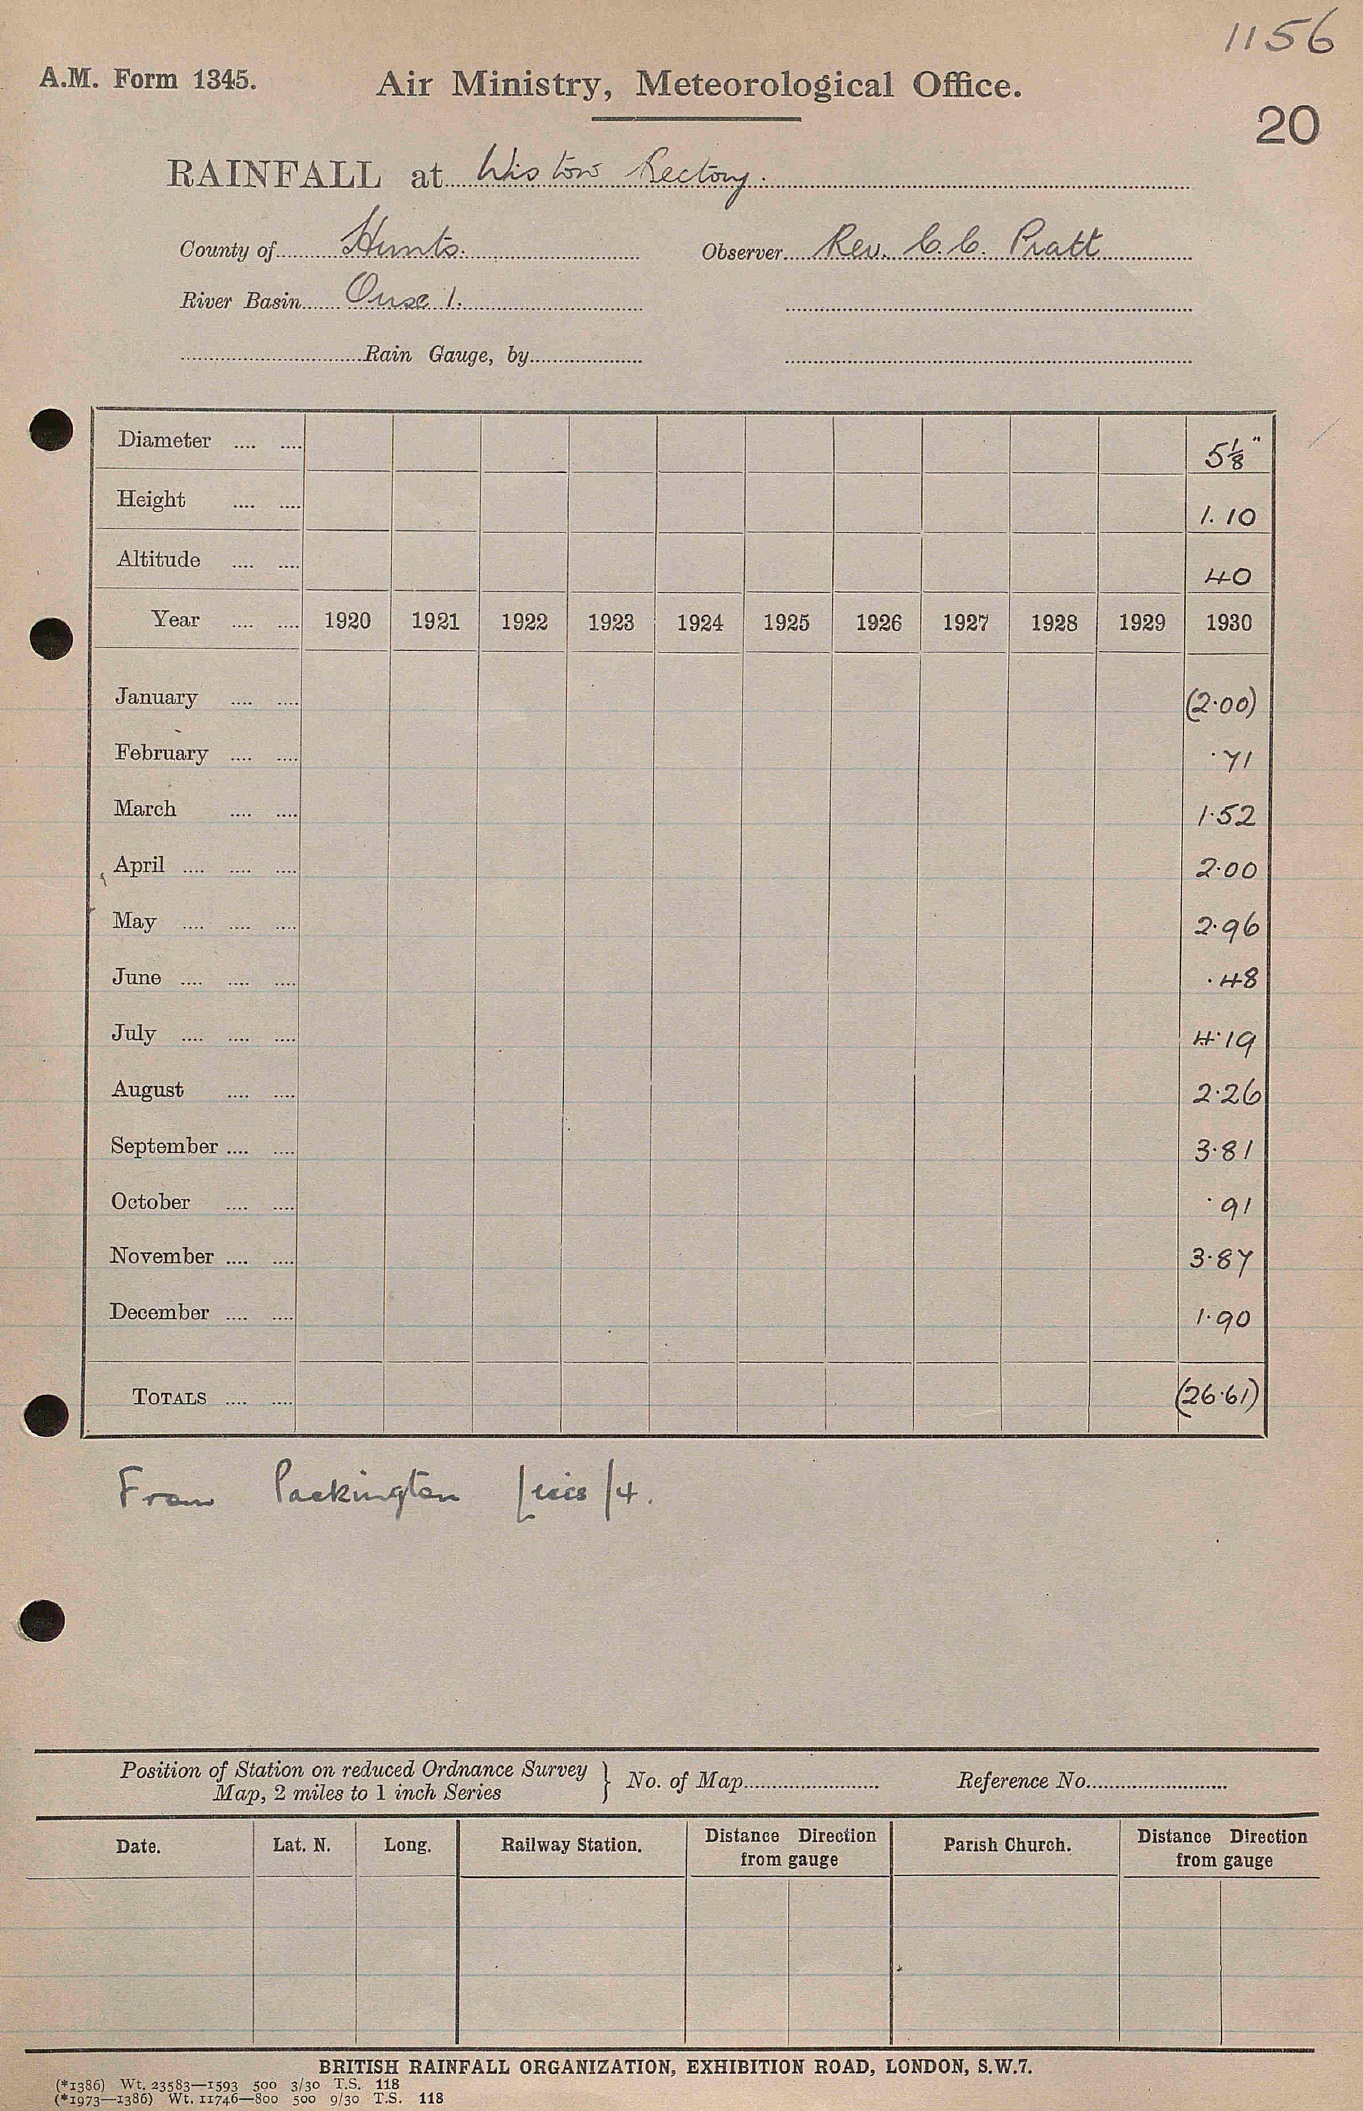 1156
A.M. Form 1345. Air Ministry, Meteorological Office.
20
RAINFALL at Wistow Rectory.
County of Hunts. Observer Rev. C. C. Pratt
River Basin Ouse 1.
Rain Gauge, by
Diameter 5 1/8"
Height 1.10
Altitude 40
Year 1920 1921 1922 1923 1924 1925 1926 1927 1928 1929 1930
January (2·00)
February ·71
March 1·52
April 2·00
May 2·96
June ·48
July 4·19
August 2·26
September 3·81
October ·91
November 3·87
December 1·90
TOTALS (26·61)
From Packington [Leics]4.
Position of Station on reduced Ordnance Survey
Map, 2 miles to 1 inch Series } No. of Map Reference No.
Date. Lat. N. Long. Railway Station. Distance from gauge Direction Parish Church. Distance from gauge Direction
BRITISH RAINFALL ORGANIZATION, EXHIBITION ROAD, LONDON, S.W.7.
(*1386) Wt. 23583—1593 500 3/30 T.S. 118
(*1973—1386) Wt. 11746—800 500 9/30 T.S. 118